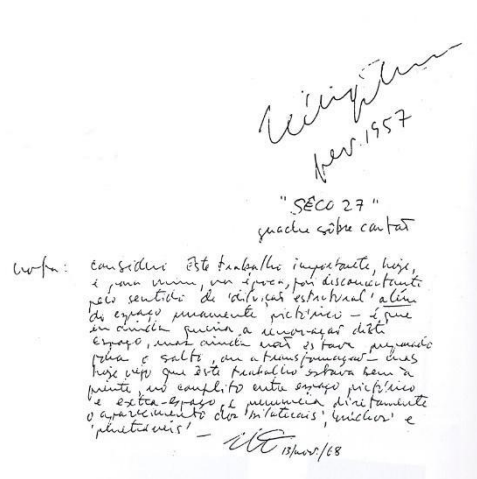 fev. 1957
"SÊCO 27"
guache sôbre cartão
nota: considero êste trabalho importante, hoje,
e para mim, na época, foi desconcertante
pelo sentido de 'diluição estrutural' além
do espaço puramente pictórico — é que
eu ainda queria a renovação dêste
espaço, mas ainda não estava preparado
para o salto, ou a transformação — mas
hoje vejo que êste trabalho estava bem à
frente, no conflito entre espaço pictórico
e extra-espaço, e prenuncia diretamente
o aparecimento dos 'bilaterais', 'núcleos' e
'penetráveis' —
13/nov./68